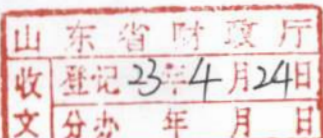 山东省财政厅
收 登记23年4月24日
文 分办 年 月 日